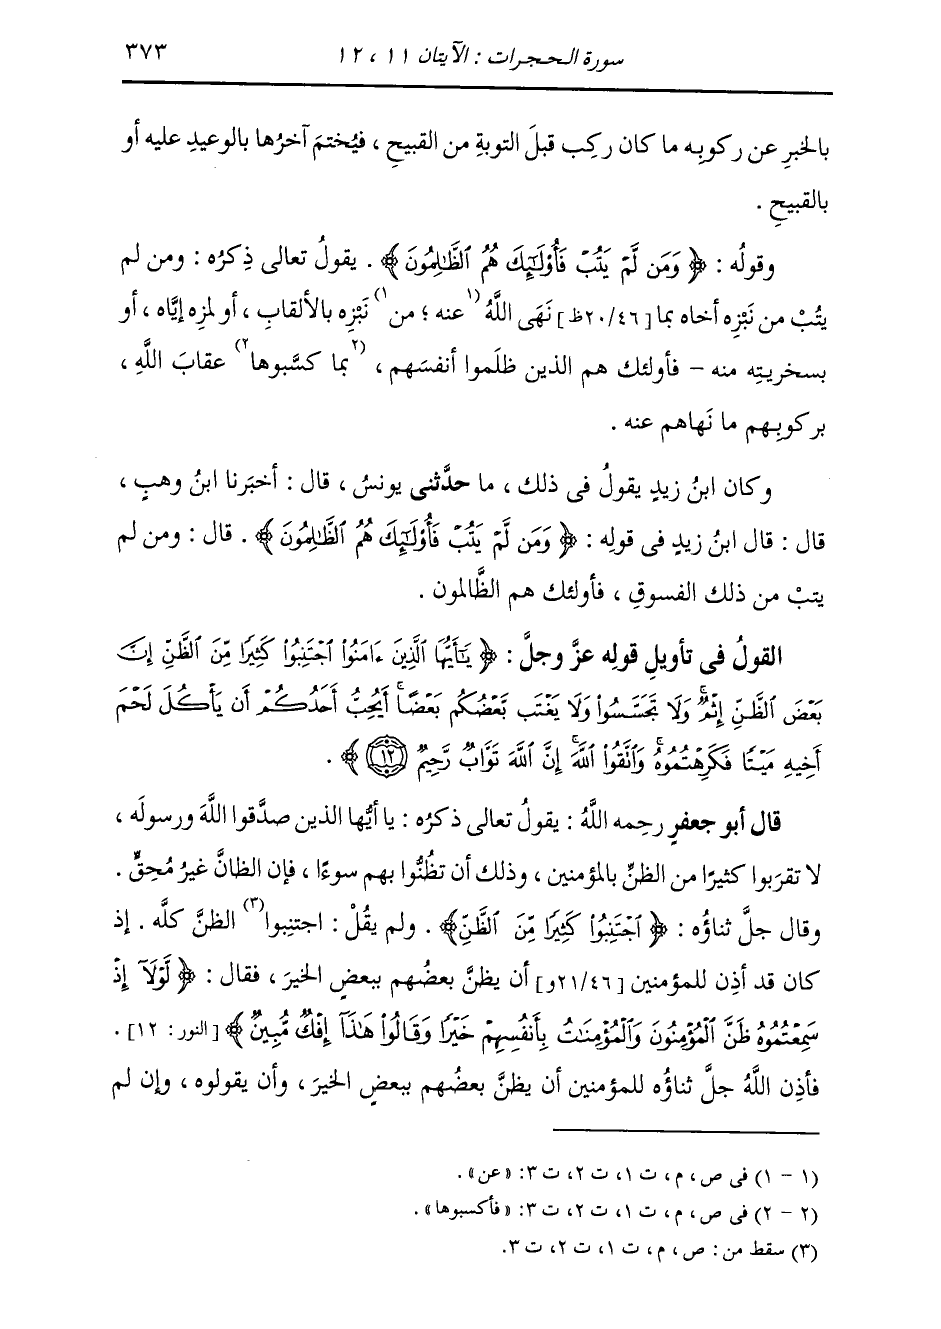 سورة الحجرات : الآيتان ١١ ، ١٢ ٣٧٣
بالخبرِ عن ركوبِه ما كان ركِب قبلَ التوبةِ من القبيحِ ، فيُختمَ آخرُها بالوعيدِ عليه أو
بالقبيحِ .
وقولُه : ﴿ وَمَن لَّمْ يَتُبْ فَأُوْلَٰٓئِكَ هُمُ ٱلظَّٰلِمُونَ ﴾ . يقولُ تعالى ذِكرُه : ومن لم
يتُبْ من نَبْزِه أخاه بما [٢٠/٤٦ظ] نَهَى اللَّهُ (١ عنه ؛ من ١) نَبْزِه بالألقابِ ، أو لمزِه إيَّاه ، أو
بسخريتِه منه – فأولئك هم الذين ظلَموا أنفسَهم ، (٢ بما كسَّبوها ٢) عقابَ اللَّهِ ،
بركوبِهم ما نَهاهم عنه .
وكان ابنُ زيدٍ يقولُ فى ذلك ، ما حدَّثنى يونسُ ، قال : أخبَرنا ابنُ وهبٍ ،
قال : قال ابنُ زيدٍ فى قولِه : ﴿ وَمَن لَّمْ يَتُبْ فَأُوْلَٰٓئِكَ هُمُ ٱلظَّٰلِمُونَ ﴾ . قال : ومن لم
يتبْ من ذلك الفسوقِ ، فأولئك هم الظَّالمون .
القولُ فى تأويلِ قولِه عزَّ وجلَّ : ﴿ يَٰٓأَيُّهَا ٱلَّذِينَ ءَامَنُواْ ٱجْتَنِبُواْ كَثِيرًا مِّنَ ٱلظَّنِّ إِنَّ
بَعْضَ ٱلظَّنِّ إِثْمٌ ۖ وَلَا تَجَسَّسُواْ وَلَا يَغْتَب بَّعْضُكُم بَعْضًا ۚ أَيُحِبُّ أَحَدُكُمْ أَن يَأْكُلَ لَحْمَ
أَخِيهِ مَيْتًا فَكَرِهْتُمُوهُ ۚ وَٱتَّقُواْ ٱللَّهَ ۚ إِنَّ ٱللَّهَ تَوَّابٌ رَّحِيمٌ ١٢ ﴾ .
قال أبو جعفرٍ رحِمه اللَّهُ : يقولُ تعالى ذكرُه : يا أيُّها الذين صدَّقوا اللَّهَ ورسولَه ،
لا تقرَبوا كثيرًا من الظنِّ بالمؤمنين ، وذلك أن تظُنُّوا بهم سوءًا ، فإن الظانَّ غيرُ مُحِقٍّ .
وقال جلَّ ثناؤُه : ﴿ ٱجْتَنِبُواْ كَثِيرًا مِّنَ ٱلظَّنِّ ﴾ . ولم يقُلْ : اجتنِبوا (٣) الظنَّ كلَّه . إذ
كان قد أذِن للمؤمنين [٢١/٤٦و] أن يظنَّ بعضُهم ببعضٍ الخيرَ ، فقال : ﴿ لَّوْلَآ إِذْ
سَمِعْتُمُوهُ ظَنَّ ٱلْمُؤْمِنُونَ وَٱلْمُؤْمِنَٰتُ بِأَنفُسِهِمْ خَيْرًا وَقَالُواْ هَٰذَآ إِفْكٌ مُّبِينٌ ﴾ [النور : ١٢] .
فأذِن اللَّهُ جلَّ ثناؤُه للمؤمنين أن يظنَّ بعضُهم ببعضٍ الخيرَ ، وأن يقولوه ، وإن لم
(١ – ١) فى ص ، م ، ت ١ ، ت ٢ ، ت ٣ : «عن» .
(٢ – ٢) فى ص ، م ، ت ١ ، ت ٢ ، ت ٣ : «فأكسبوها» .
(٣) سقط من : ص ، م ، ت ١ ، ت ٢ ، ت ٣ .